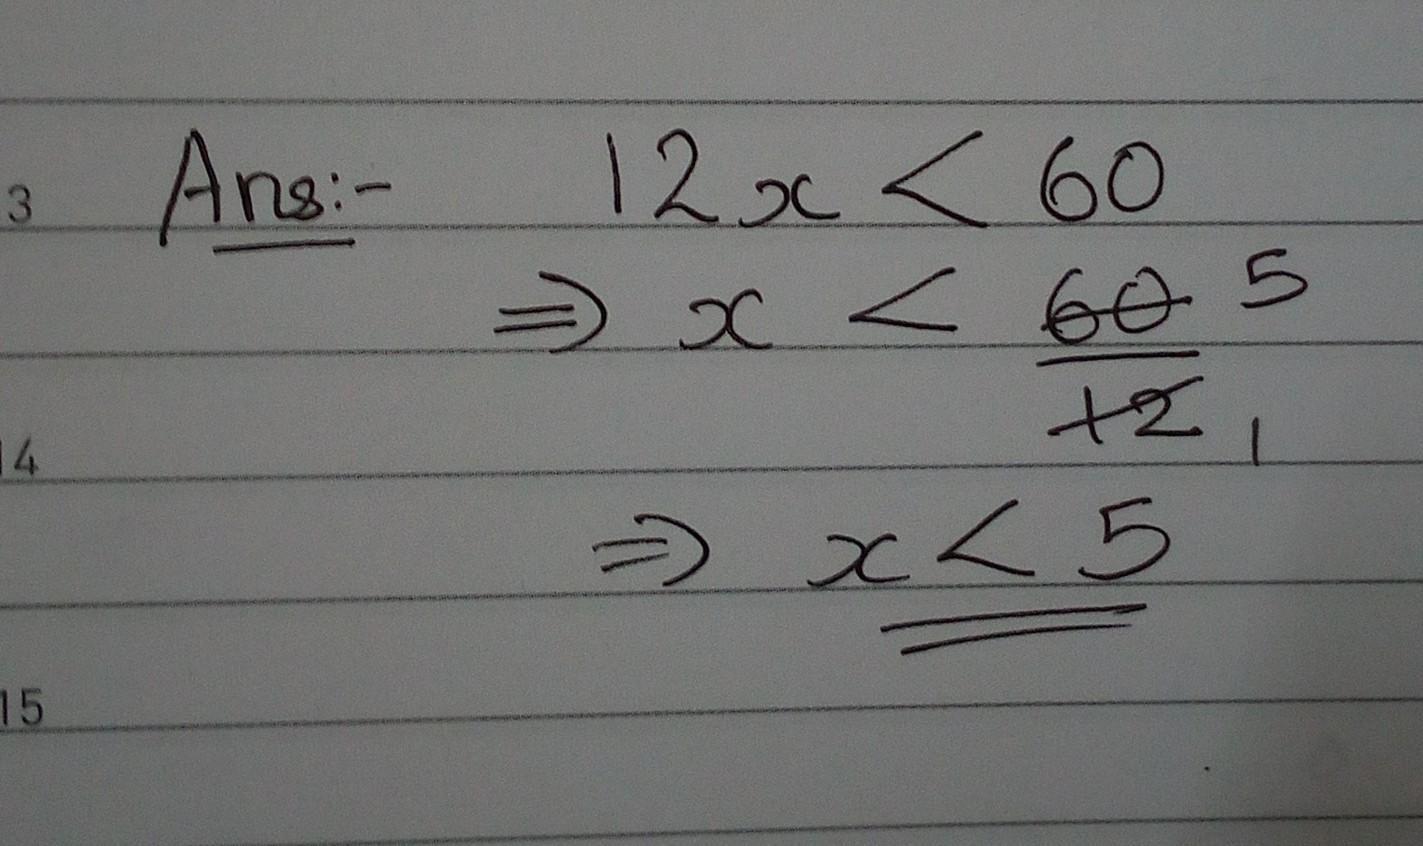 3 Ans:- 12x < 60
⇒ x < 60 5
14 12 1
⇒ x < 5
15